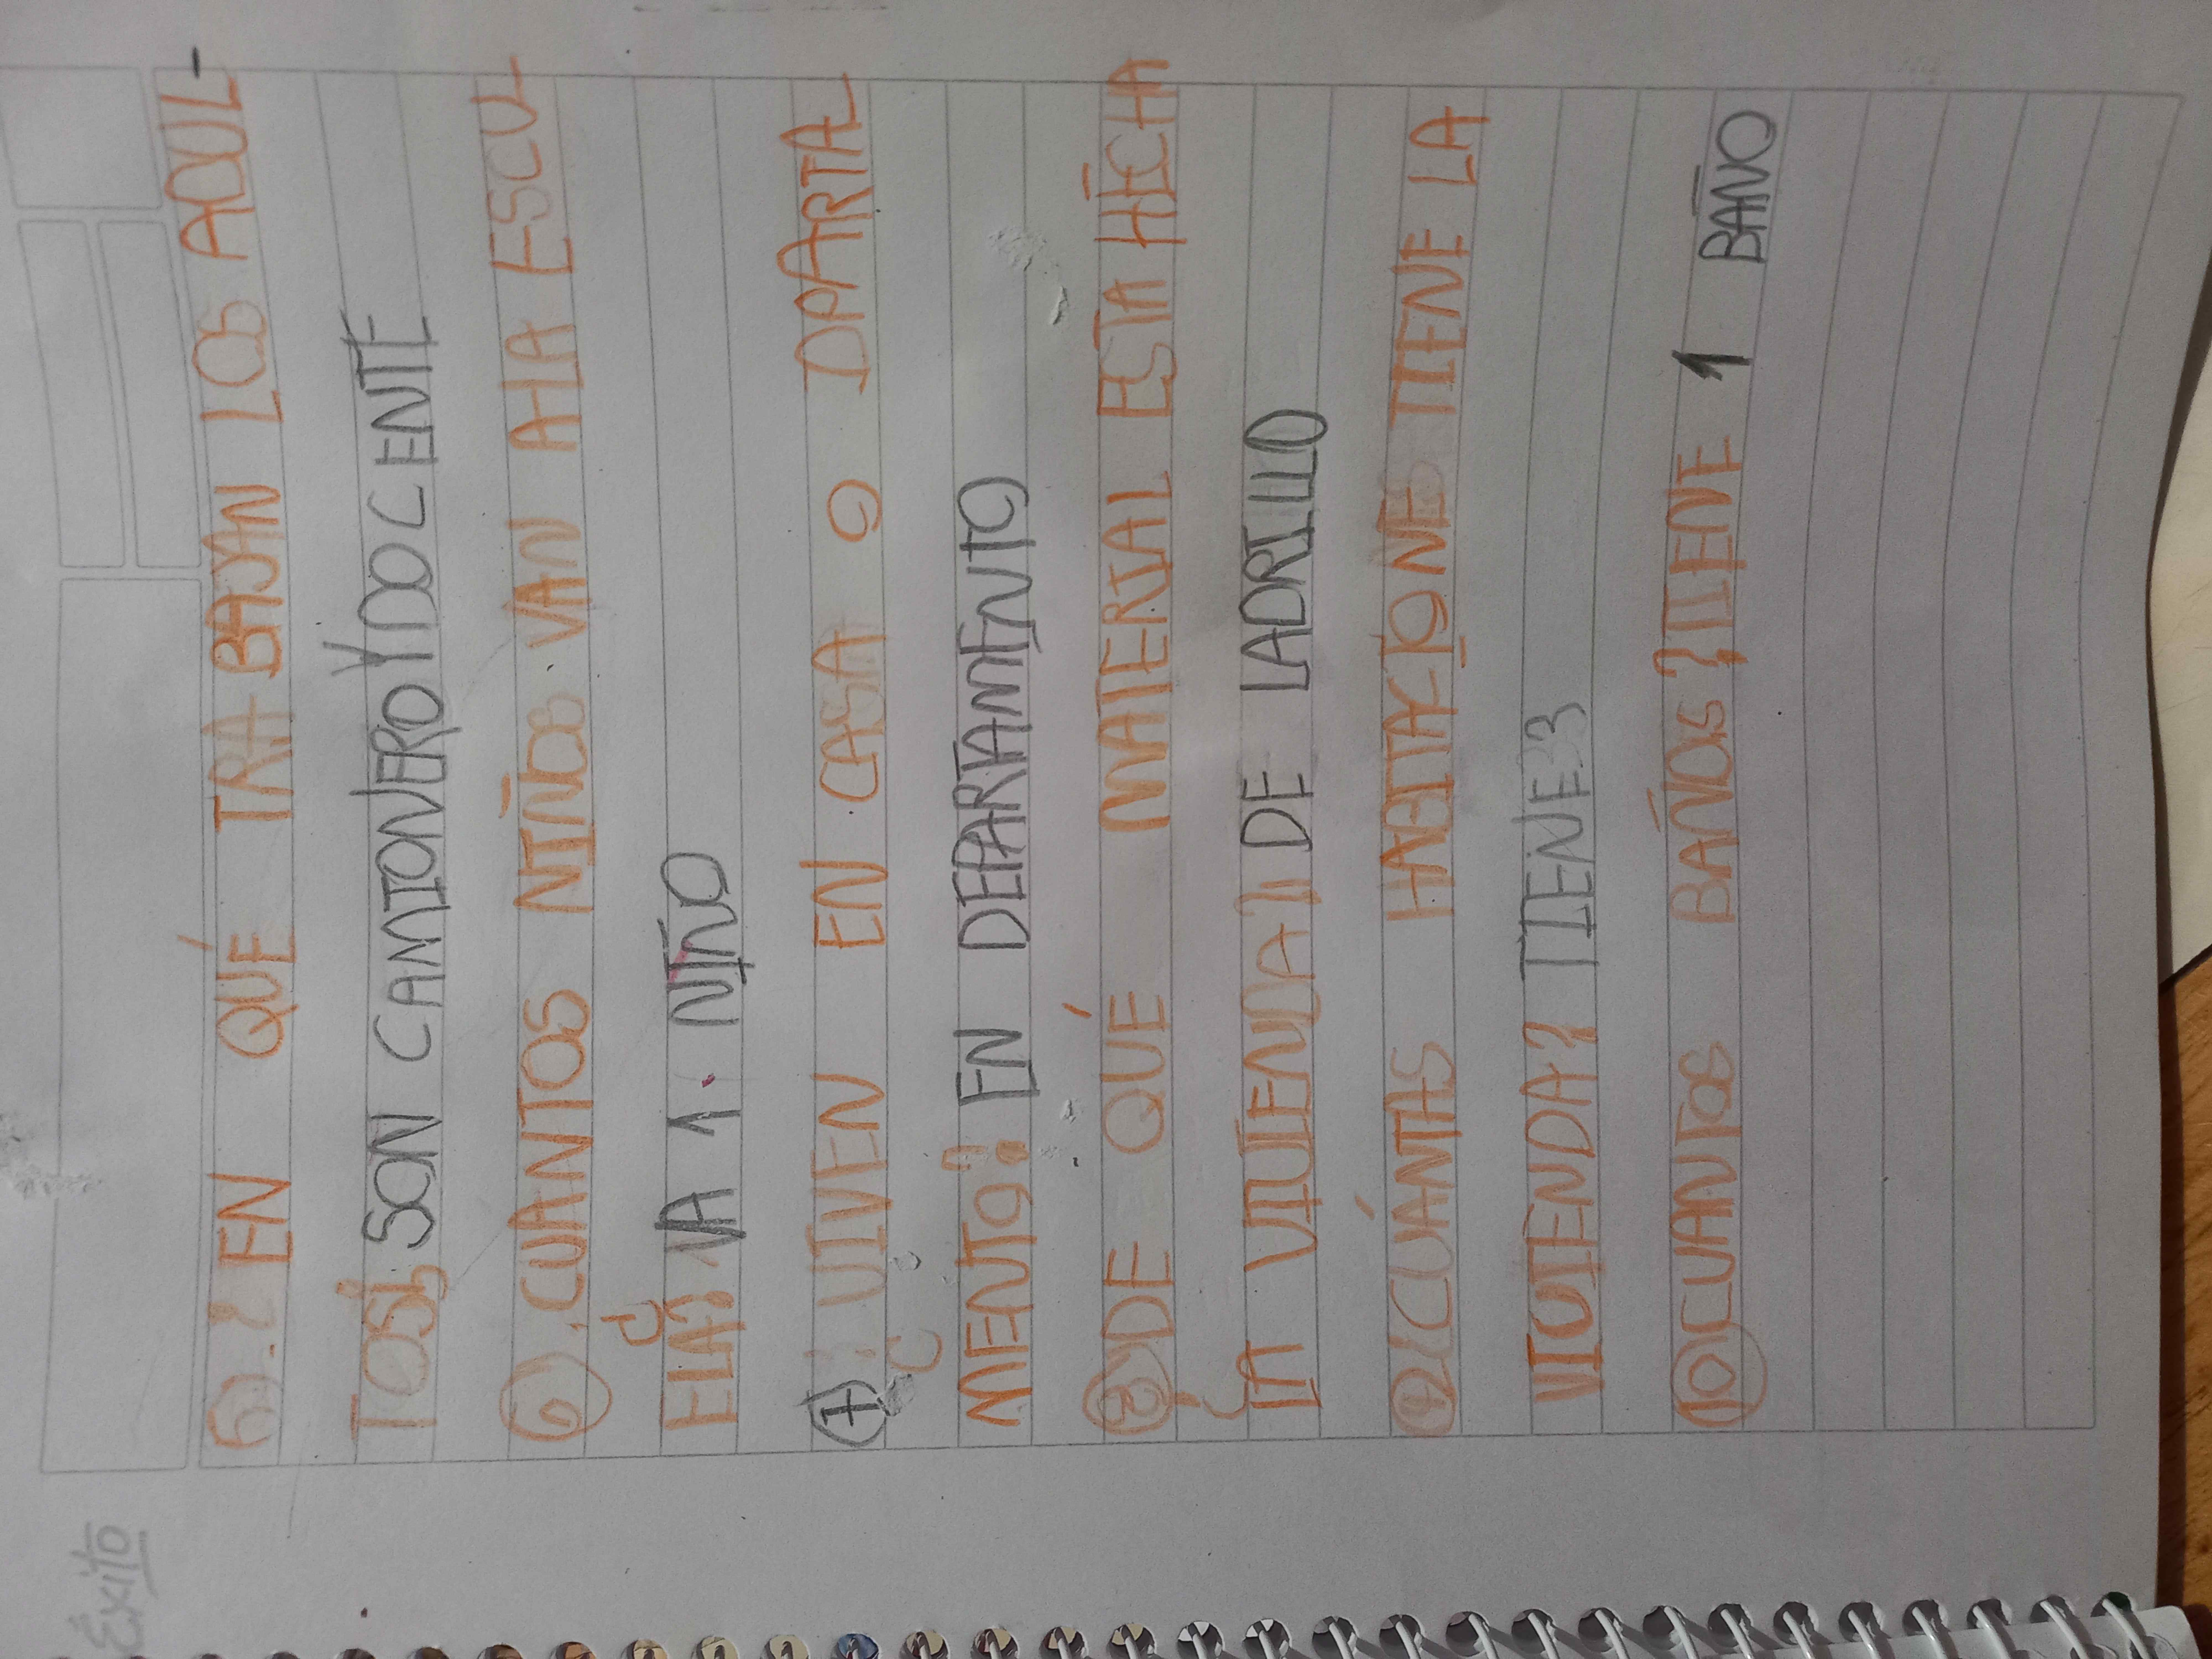 Éxito
5).¿ EN QUÉ TRA-BAJAN LOS ADUL-
TOS?, SON CAMIONERO Y DOCENTE
6).CUANTOS NIÑOS VAN A LA ESCU-
ELA? VA 1 NIÑO
7 VIVEN EN CASA O DPARTA-
MENTO? EN DEPARTAMENTO
8 DE QUÉ MATERIAL ESTA HECHA
LA VIVIENDA? DE LADRILLO
9 ¿CUÁNTAS HABITACIONES TIENE LA
VIVIENDA? TIENE 3
10 CUANTOS BAÑOS? TIENE 1 BAÑO